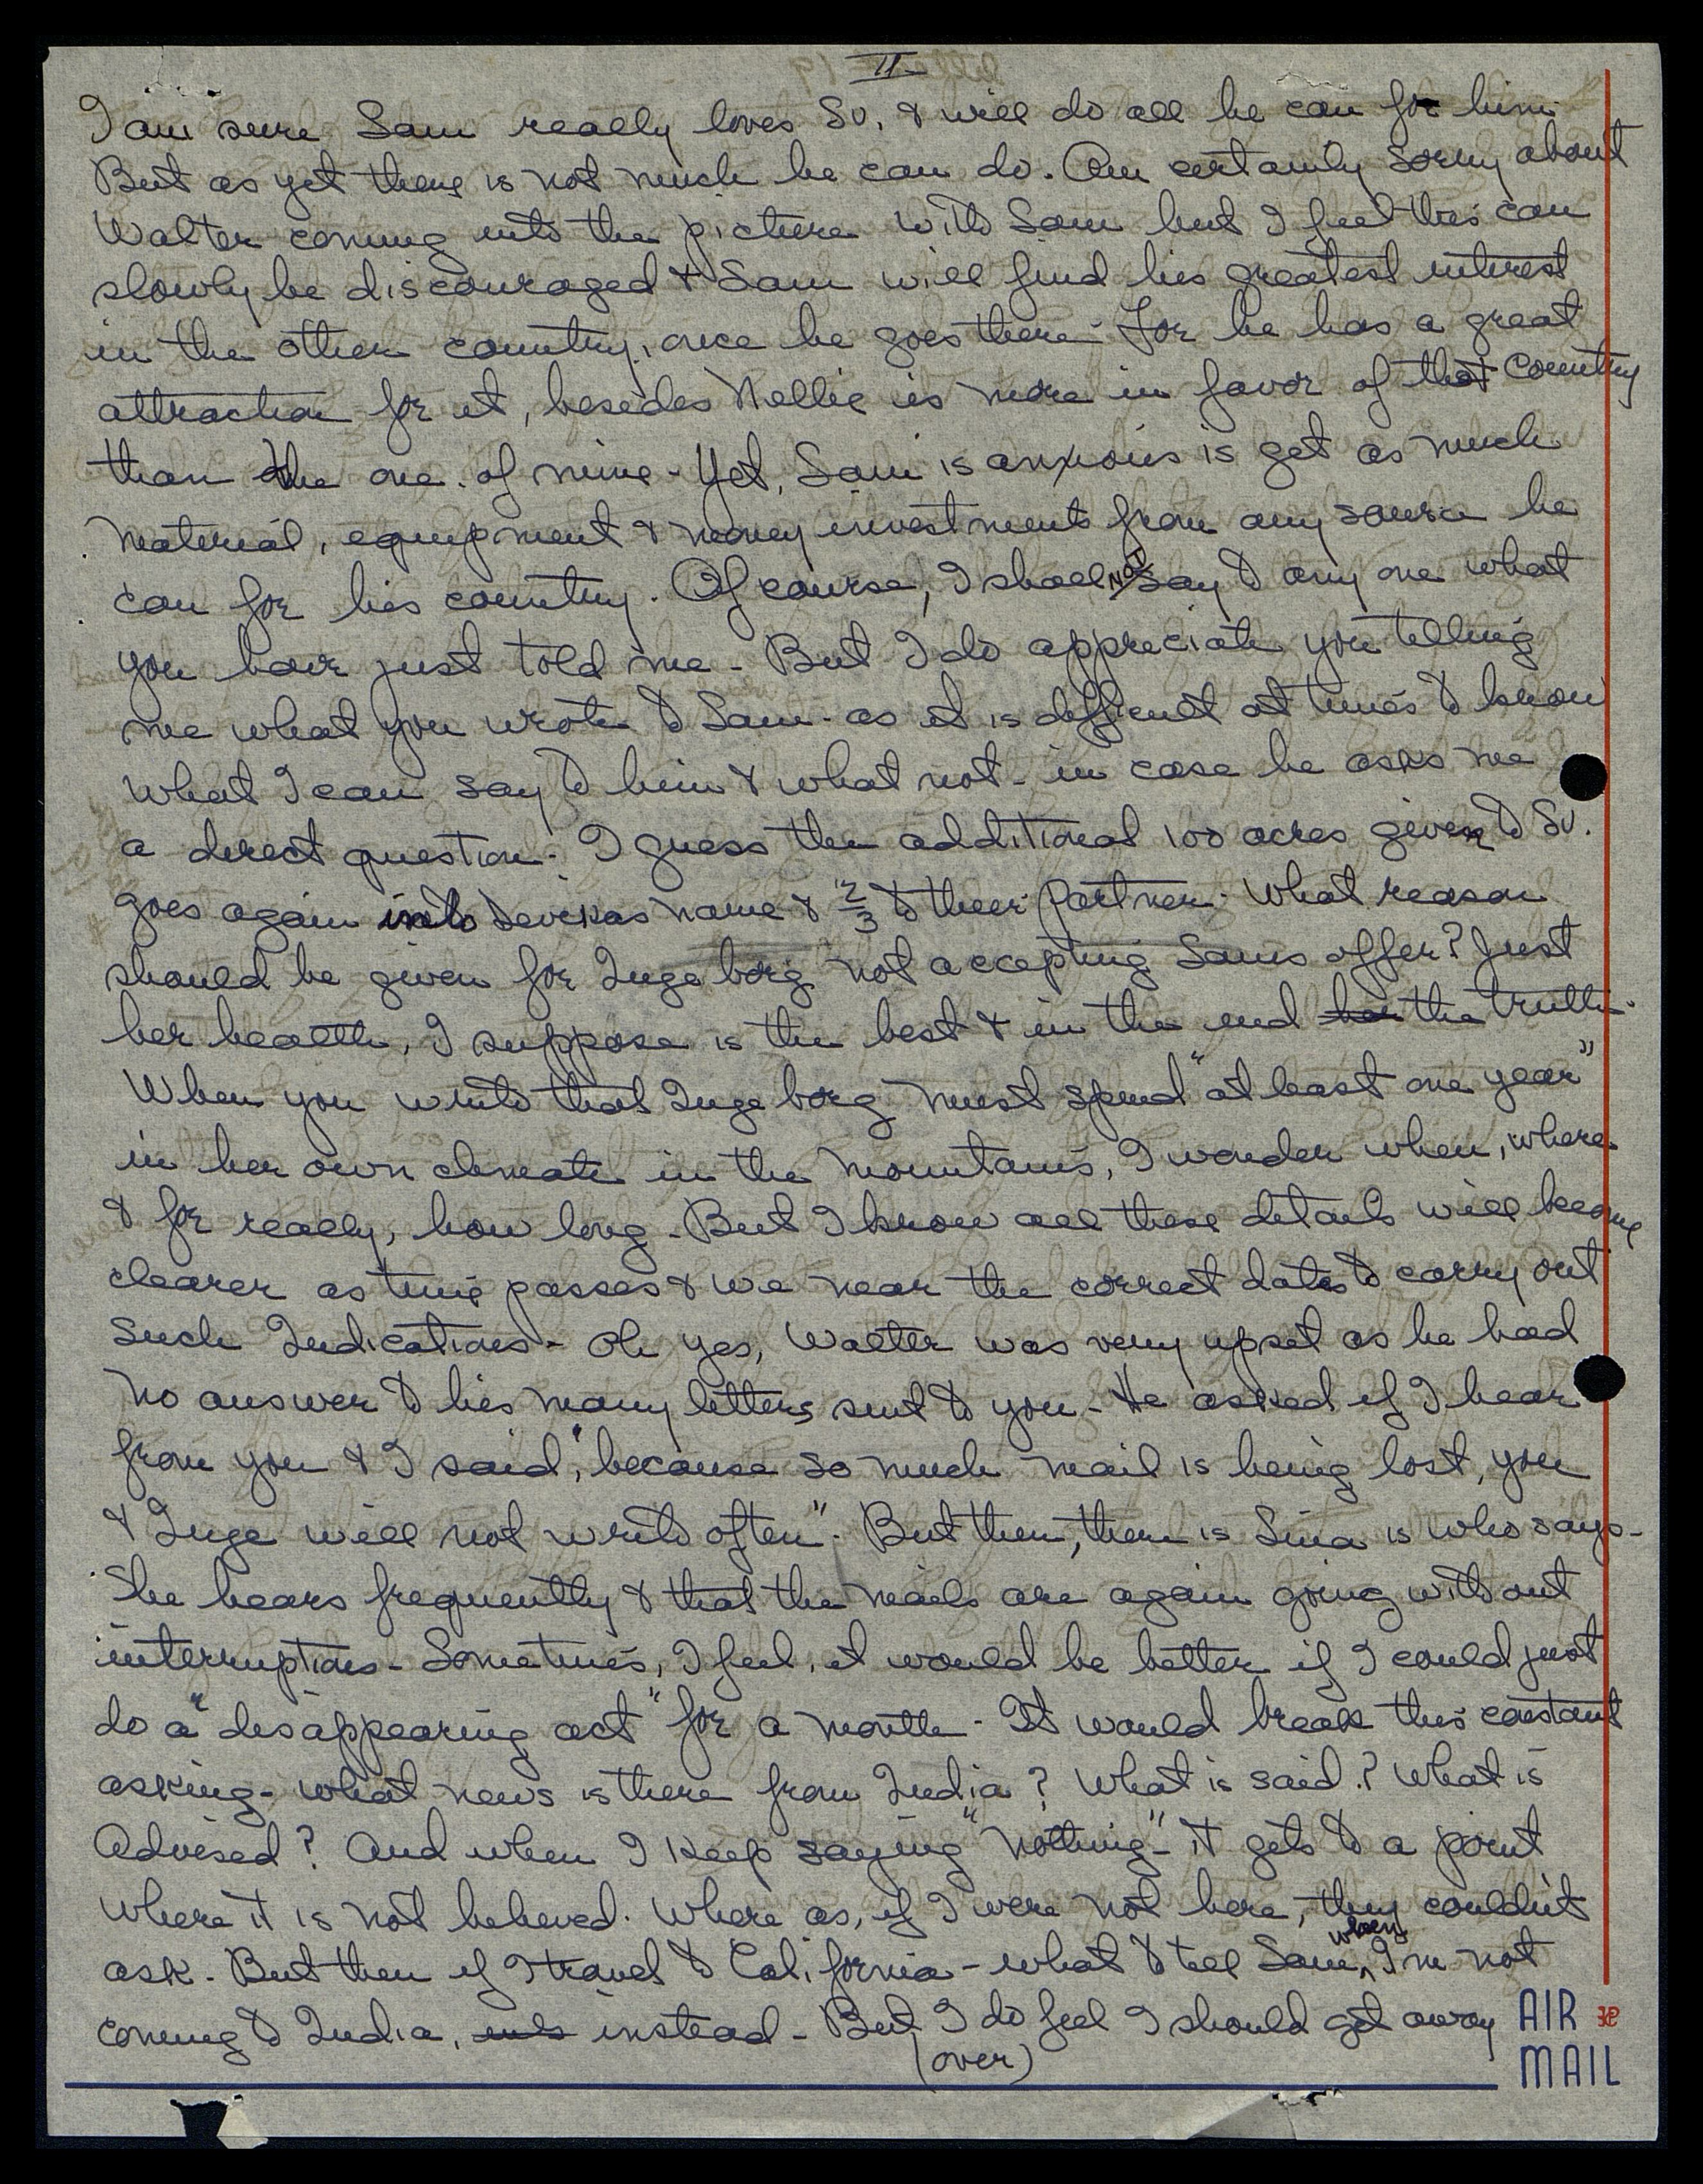 II
I am sure Sam really loves Sv. & will do all he can for him.
But as yet there is not much he can do. Am certainly sorry about
Walter coming into the picture with Sam but I feel this can
slowly be discouraged & Sam will find his greatest interest
in the other country, once he goes there - For he has a great
attraction for it, besides Nellie is more in favor of that country
than the one of mine - Yet, Sam is anxious is get as much
material, equipment & money investments from any source he
can for his country. Of course, I shall NOT say to any one what
you have just told me - But I do appreciate you telling
me what you wrote to Sam - as it is difficult at times to know
what I can say to him & what not - in case he asks me
a direct question - I guess the additional 100 acres given to Sv.
goes again into Devikas name & 2/3 to their partner. What reason
should be given for Ingeborg not accepting Sams offer? Just
her health, I suppose is the best & in the end the truth -
When you write that Ingeborg must spend "at least one year"
in her own climate in the mountains, I wonder when, where
& for really, how long - But I know all these details will become
clearer as time passes & we near the correct dates to carry out
such Indications - Oh yes, Walter was very upset as he had
no answer to his many letters sent to you - He asked if I hear
from you & I said, "because so much mail is being lost, you
& Inge will not write often". But then, there is Sina is who says -
She hears frequently & that the mails are again going without
interruptions - Sometimes, I feel, it would be better if I could just
do a "disappearing act" for a month - It would break this constant
asking - what news is there from India? What is said? What is
Advised? And when I keep saying "nothing" - it gets to a point
where it is not believed. Where as, if I were not here, they couldn't
ask. But then if I travel to California - what to tell Sam, when I'm not
coming to India, instead - But I do feel I should get away
(over)
AIR
MAIL